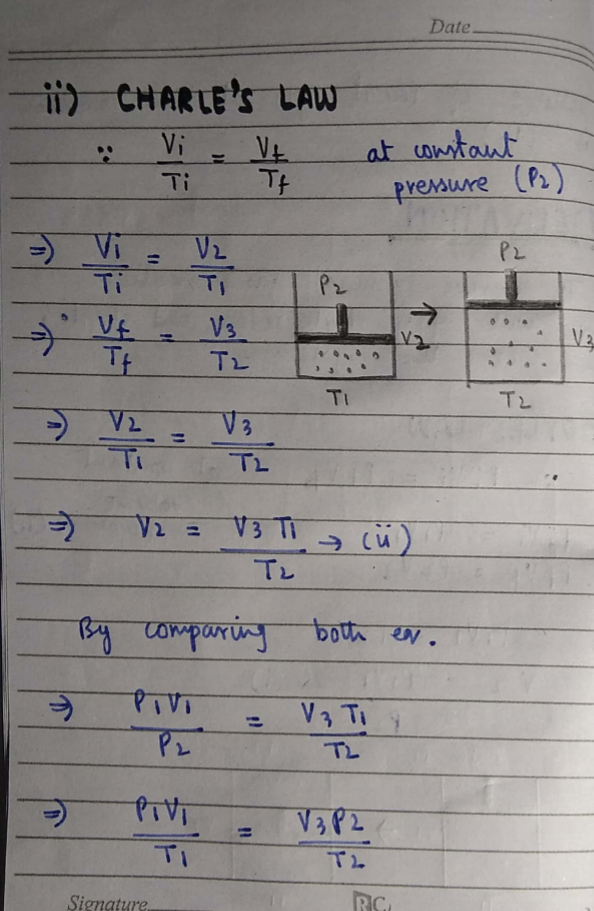 Date
ii) CHARLE'S LAW
∵ Vi/Ti = Vf/Tf at constant
pressure (P2)
⇒ Vi/Ti = V2/T1
⇒ Vf/Tf = V3/T2
P2 V2 T1 → P2 V3 T2
⇒ V2/T1 = V3/T2
⇒ V2 = V3 T1/T2 → (ii)
By comparing both eq.
⇒ P1V1/P2 = V3 T1/T2
⇒ P1V1/T1 = V3P2/T2
Signature RC.